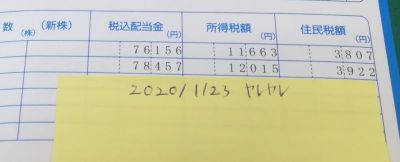 数 (新株) 税込配当金 所得税額 住民税額
(株) (円) (円) (円)
76156 11663 3807
78457 12015 3922
2020/1/23 ヤレヤレ